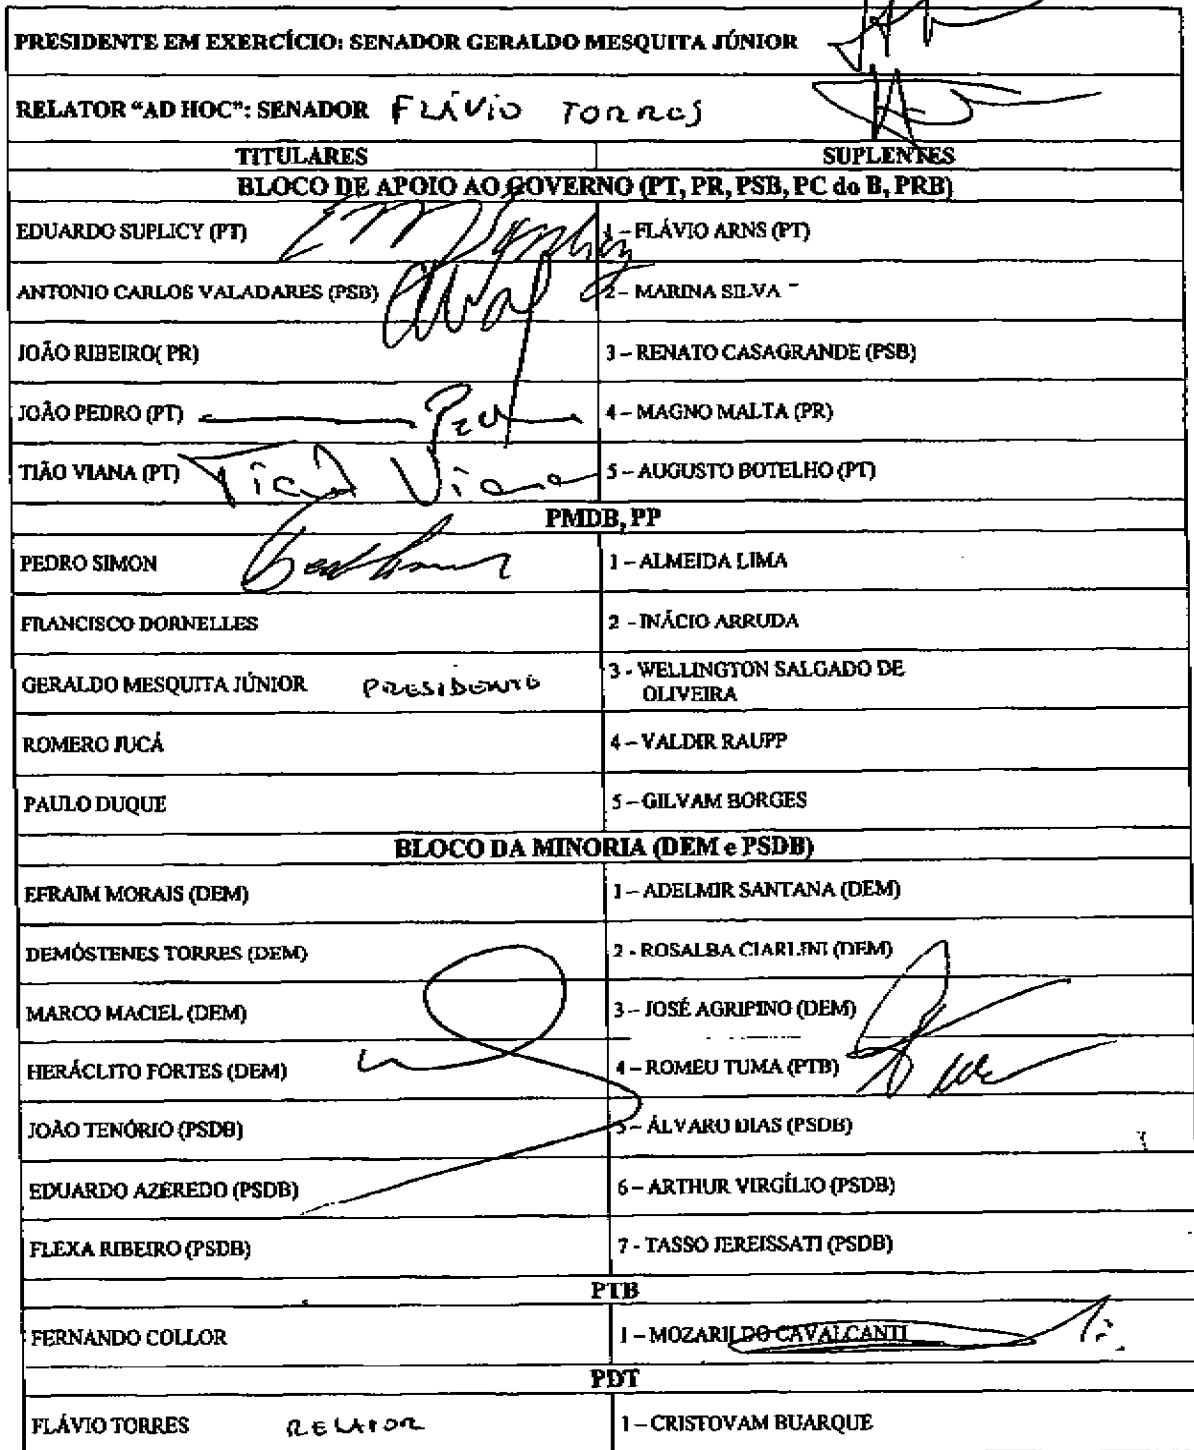 PRESIDENTE EM EXERCÍCIO: SENADOR GERALDO MESQUITA JÚNIOR
RELATOR “AD HOC”: SENADOR FLÁVIO TORRES
TITULARES SUPLENTES
BLOCO DE APOIO AO GOVERNO (PT, PR, PSB, PC do B, PRB)
EDUARDO SUPLICY (PT) 1 – FLÁVIO ARNS (PT)
ANTONIO CARLOS VALADARES (PSB) 2 – MARINA SILVA
JOÃO RIBEIRO( PR) 3 – RENATO CASAGRANDE (PSB)
JOÃO PEDRO (PT) 4 – MAGNO MALTA (PR)
TIÃO VIANA (PT) Tião Viana 5 – AUGUSTO BOTELHO (PT)
PMDB, PP
PEDRO SIMON 1 – ALMEIDA LIMA
FRANCISCO DORNELLES 2 - INÁCIO ARRUDA
GERALDO MESQUITA JÚNIOR PRESIDENTE 3 - WELLINGTON SALGADO DE
OLIVEIRA
ROMERO JUCÁ 4 – VALDIR RAUPP
PAULO DUQUE 5 – GILVAM BORGES
BLOCO DA MINORIA (DEM e PSDB)
EFRAIM MORAIS (DEM) 1 – ADELMIR SANTANA (DEM)
DEMÓSTENES TORRES (DEM) 2 - ROSALBA CIARLINI (DEM)
MARCO MACIEL (DEM) 3 – JOSÉ AGRIPINO (DEM)
HERÁCLITO FORTES (DEM) 4 – ROMEU TUMA (PTB)
JOÃO TENÓRIO (PSDB) 5 – ÁLVARO DIAS (PSDB)
EDUARDO AZEREDO (PSDB) 6 – ARTHUR VIRGÍLIO (PSDB)
FLEXA RIBEIRO (PSDB) 7 - TASSO JEREISSATI (PSDB)
PTB
FERNANDO COLLOR 1 – MOZARILDO CAVALCANTI
PDT
FLÁVIO TORRES RELATOR 1 – CRISTOVAM BUARQUE